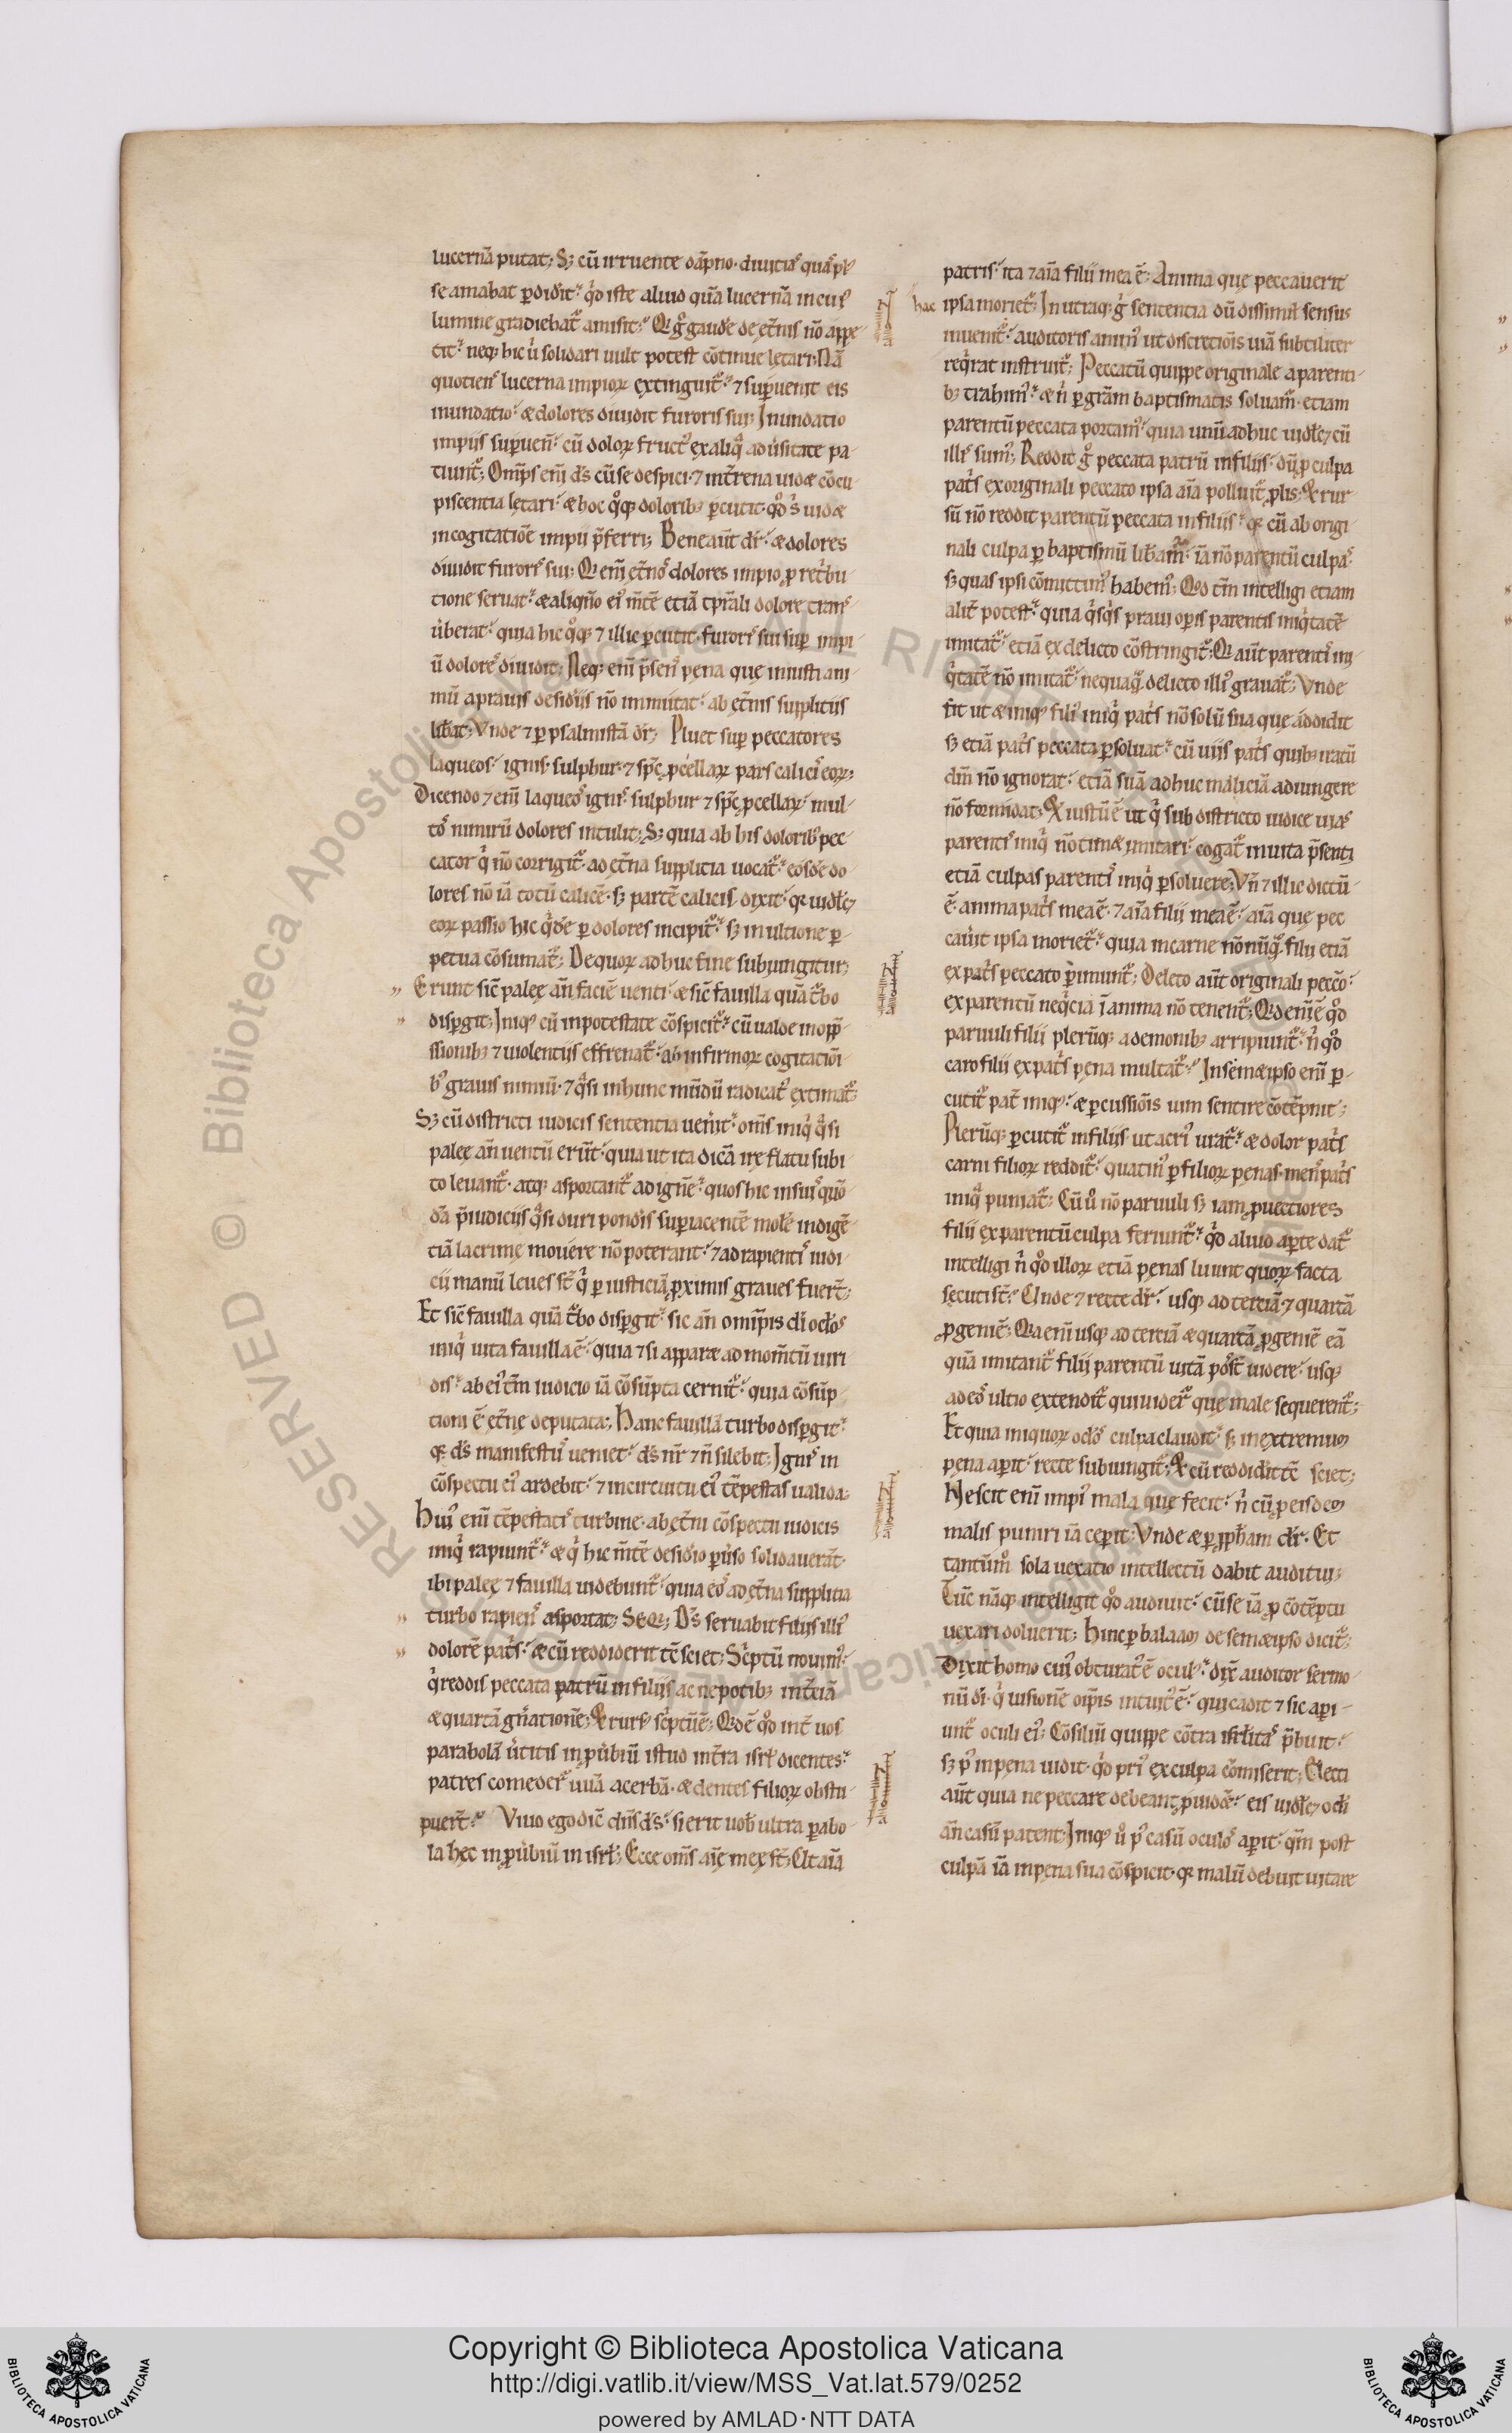 lucernā putat; S; cū irruente dāpno· diuitiaſ quaſ pͥ⁹
se amabat pdidit· qͥd iste aliud quā lucernā in cuiꝰ
lumine gradiebatͬ amisit; Qͥ gͦ gaudere de et̄nis nō appe
tit· neq; hic u͛ solidari uult potest cōtinue lętari; Nā
quotienſ lucerna impioꝝ extinguitͬ· ⁊ supueniet eis
inundatio· & dolores diuidit furoris sui; Inundatio
impiis supuenit· cū doloꝝ fluctꝰ ex aliqͣ aduersitate pa
tiuntͬ; Omps eni ds cū se despici· ⁊ in terrena uidet cōcu
piscentia lętari· & hoc qͦq; dolorib; pcutit· qͦd s uidet
in cogitatiōe impii pferri; Bene aūt dr̄· & dolores
diuidit furorſ sui; Qͥ eni et̄noſ dolores impio pro ret̄bu
tione seruat· & aliqn̄o eiꝰ m̄tē etiā tp̄rali dolore tranſ
uerberat· quia hic qͦq; ⁊ illic pcutit· furoriſ sui sup impi
ū doloreſ diuidit; Neq; eni psenſ pena quę iniusti ani
mū a prauis desideriis nō immutat· ab et̄nis suppliciis
libat; Vnde ⁊ p psalmistā dr̄; Pluet sup peccatores
laqueos· ignis· sulphur· ⁊ spc̄ pcellaꝝ pars caliciſ eoꝝ;
Dicendo ⁊ eni laqueoſ igniſ sulphur ⁊ spc̄ pcellaꝝ· mul
toſ nimirū dolores intulit; S; quia ab his doloribꝰ pec
cator qͥ nō corrigitͬ· ad et̄na supplicia uocatͬ· eosdē do
lores nō iā totū calicē· s; partē calicis dixit· qͥ uidel;
eoꝝ passio hic qͥdē p dolores incipitͬ· s; in ultione p
petua cōsumatͬ; De quoꝝ adhuc fine subiungitur;
Erunt sic̄ paleę an̄ faciē uenti· & sic̄ fauilla quā tͬbo
dispgit; Iniqͥ; cū in potestate cōspicitͬ· cū ualde in opp̄
ssionib; ⁊ uiolentiis effrenatͬ· ab infirmoꝝ cogitatiōi
bꝰ grauis nimiū· ⁊ qͣsi in hunc mūdū radicatꝰ extimatͬ;
S; cū districti iudicis sententia uen̄it· om̄s iniqͥ qͣsi
paleę an̄ uentū erūt· quia ut ita dicā irę flatu subi
to leuantͬ· atq; asportantͬ ad ignē· quos hic in suiſ quō
dā piudiciis qͣsi duri ponderis supiacentē molē indigē
tiā lacrimę mouere nō poterant· ⁊ ad rapientiſ iudi
cii manū leues st̄ qͥ p iusticiā proximis graues fuer̄t;
Et sic̄ fauilla quā tͬbo dispgit· sic an̄ omīpis di oclos
iniqͥ uita fauilla ē· quia ⁊ si apparet ad mom̄tū uiri
dis· ab eiꝰ tm̄ iudicio iā cōsūpta cernitͬ· quia cōsūp
tioni ē et̄nę deputata; Hanc fauillā turbo dispgit·
qͥ ds̄ manifestuſ ueniet· ds̄ nr̄ ⁊ n̄ silebit; Igniſ in
cōspectu eiꝰ ardebit· ⁊ in circuitu eiꝰ tēpestas ualida;
Huiꝰ eni tēpestatiſ turbine· ab et̄ni cōspectu iudicis
iniqͥ rapiuntͬ· & qͥ hic m̄tē desiderio puerso solidauerāt·
ibi paleę ⁊ fauilla uidebuntͬ· quia eoſ ad et̄na supplicia
turbo rapienſ asportat; SEQ; Ds̄ seruabit filiis illiꝰ
dolorē patͥs· & cū reddiderit tc̄ sciet; Scͥptū nouimꝰ·
qͥ reddis peccata patrū in filiis ac nepotib; in t̄ciā
& quartā gn̄atione; & rursꝰ scͥptū ē; Qͥd ē qͦd int̄ uos
parabolā u͛titis in puerbiū istud in t̄ra isrl̄ dicentes·
patres comeder̄ uuā acerbā· & dentes filioꝝ obstu
puer̄t· Viuo ego dic̄ dn̄s ds̄· si erit uob̄ ultra parabo
la hęc in puerbiū in isrl̄; Ecce om̄s aīę męę st̄; Vt aīa
patris· ita ⁊ aīa filii mea ē; Anima quę peccauerit
hac
ipsa morietͬ; In utraq; gͦ sententia dū dissimil̄ sensus
inuenitͬ· auditoris animꝰ ut discretiōis uiā subtiliter
reqͥrat instruitͬ; Peccatū quippe originale a parenti
b; trahimꝰ· & n̄ p grām baptismatis soluamͬ· etiam
parentū peccata portamꝰ· quia unū adhuc uidel; cū
illiſ sumꝰ; Reddit gͦ peccata patrū in filiis· dū pro culpa
patͥs ex originali peccato ipsa aīa polluitͬ prolis; & rur
sū nō reddit parentū peccata in filiis· qͥ cū ab origi
nali culpa p baptismū lib̄amͬ· iā nō parentū culpaſ·
s; quas ipsi cōmittimꝰ habemꝰ; Qd tm̄ intelligi etiam
alit̄ potest· quia qͥsqͥs praui opis parentis iniqͥtatē
imitatͬ· etiā ex delicto cōstringitͬ; Qͥ aūt parentiſ ini
qͥtatē nō imitatͬ· nequaqͣ delicto illiꝰ grauatͬ; Vnde
fit ut & iniqͥ filiꝰ iniqͥ patͥs nō solū sua quę addidit
s; etiā patͥs peccata psoluat· cū uiis patͥs quib; iratū
dm̄ nō ignorat· etiā suā adhuc maliciā adiungere
nō formidat; & iustū ē ut qͥ sub districto iudice uiaſ
parentiſ iniqͥ nō timet imitari· cogatͬ in uita psenti
etiā culpas parentiſ iniqͥ psoluere; Vn̄ ⁊ illic dictū
ē· anima patͥs mea ē· ⁊ aīa filii mea ē· aīa quę pec
cau͛it ipsa morietͬ· quia in carne nō nūqͣ filii etiā
ex patͥs peccato pimuntͬ; Deleto aūt originali peccō·
ex parentū neqͥcia ī anima nō tenentͬ; Qͥd eni ē qͦd
paruuli filii plerūq; a demonib; arripiuntͬ· n̄ qͦd
caro filii ex patͥs pęna multatͬ· In semetipso eni p
cutitͬ pat̄ iniqͥ· & pcussiōis uim sentire cōtēpnit;
Plerūq; pcutitͬ in filiis ut acriꝰ uratͬ· & dolor patͥs
carni filioꝝ redditͬ· quatinꝰ p filioꝝ penas menſ patͥs
iniqͣ puniatͬ; Cū uͦ nō paruuli s; iam puectiores
filii ex parentū culpa feriuntͬ· qͥd aliud apte datͬ
intelligi n̄ qͦd illoꝝ etiā pęnas luunt quoꝝ facta
secuti st̄; Vnde ⁊ recte dr̄· usq; ad terciā ⁊ quartā
progeniē; Qͥa eni usq; ad terciā & quartā progeniē eā
quā imitantͬ filii parentū uitā poss̄t uidere· usq;
ad eoſ ultio extenditͬ qui uider̄ quę male sequerentͬ;
Et quia iniquoꝝ oclos culpa claudit· s; in extremum
pęna apit· recte subiungitͬ; & cū reddidit tc̄ sciet;
Nescit eni impiꝰ mala quę fecit· n̄ cū p eisdem
malis puniri iā cepit; Vnde & p proph̄am dr̄· Et
tantūmͦ sola uexatio intellectū dabit auditui;
Tūc nāq; intelligit qͦd audiuit· cū se iā pro cōtēptu
uexari doluerit; Hinc p balaam de semetipso dicitͬ;
Dixit homo cuiꝰ obturatꝰ ē oculꝰ· dix̄ auditor sermo
nū di· qͥ uisionē oīpis intuitꝰ ē· qui cadit ⁊ sic api
untͬ oculi eiꝰ; Cōsiliū quippe cōtra isrl̄itaſ pbuit·
s; pꝰ in pena uidit· qͥd priꝰ ex culpa cōmiserit; Electi
aūt quia ne peccare debeant puidēt· eis uidel; ocl̄i
an̄ casū patent; Iniqͥ; uͦ pꝰ casū oculoſ apit· qm̄ post
culpā iā in pęna sua cōspicit· qͥ malū debuit uitare
Copyright © Biblioteca Apostolica Vaticana
http://digi.vatlib.it/view/MSS_Vat.lat.579/0252
powered by AMLAD·NTT DATA
BIBLIOTECA APOSTOLICA VATICANA
BIBLIOTECA APOSTOLICA VATICANA